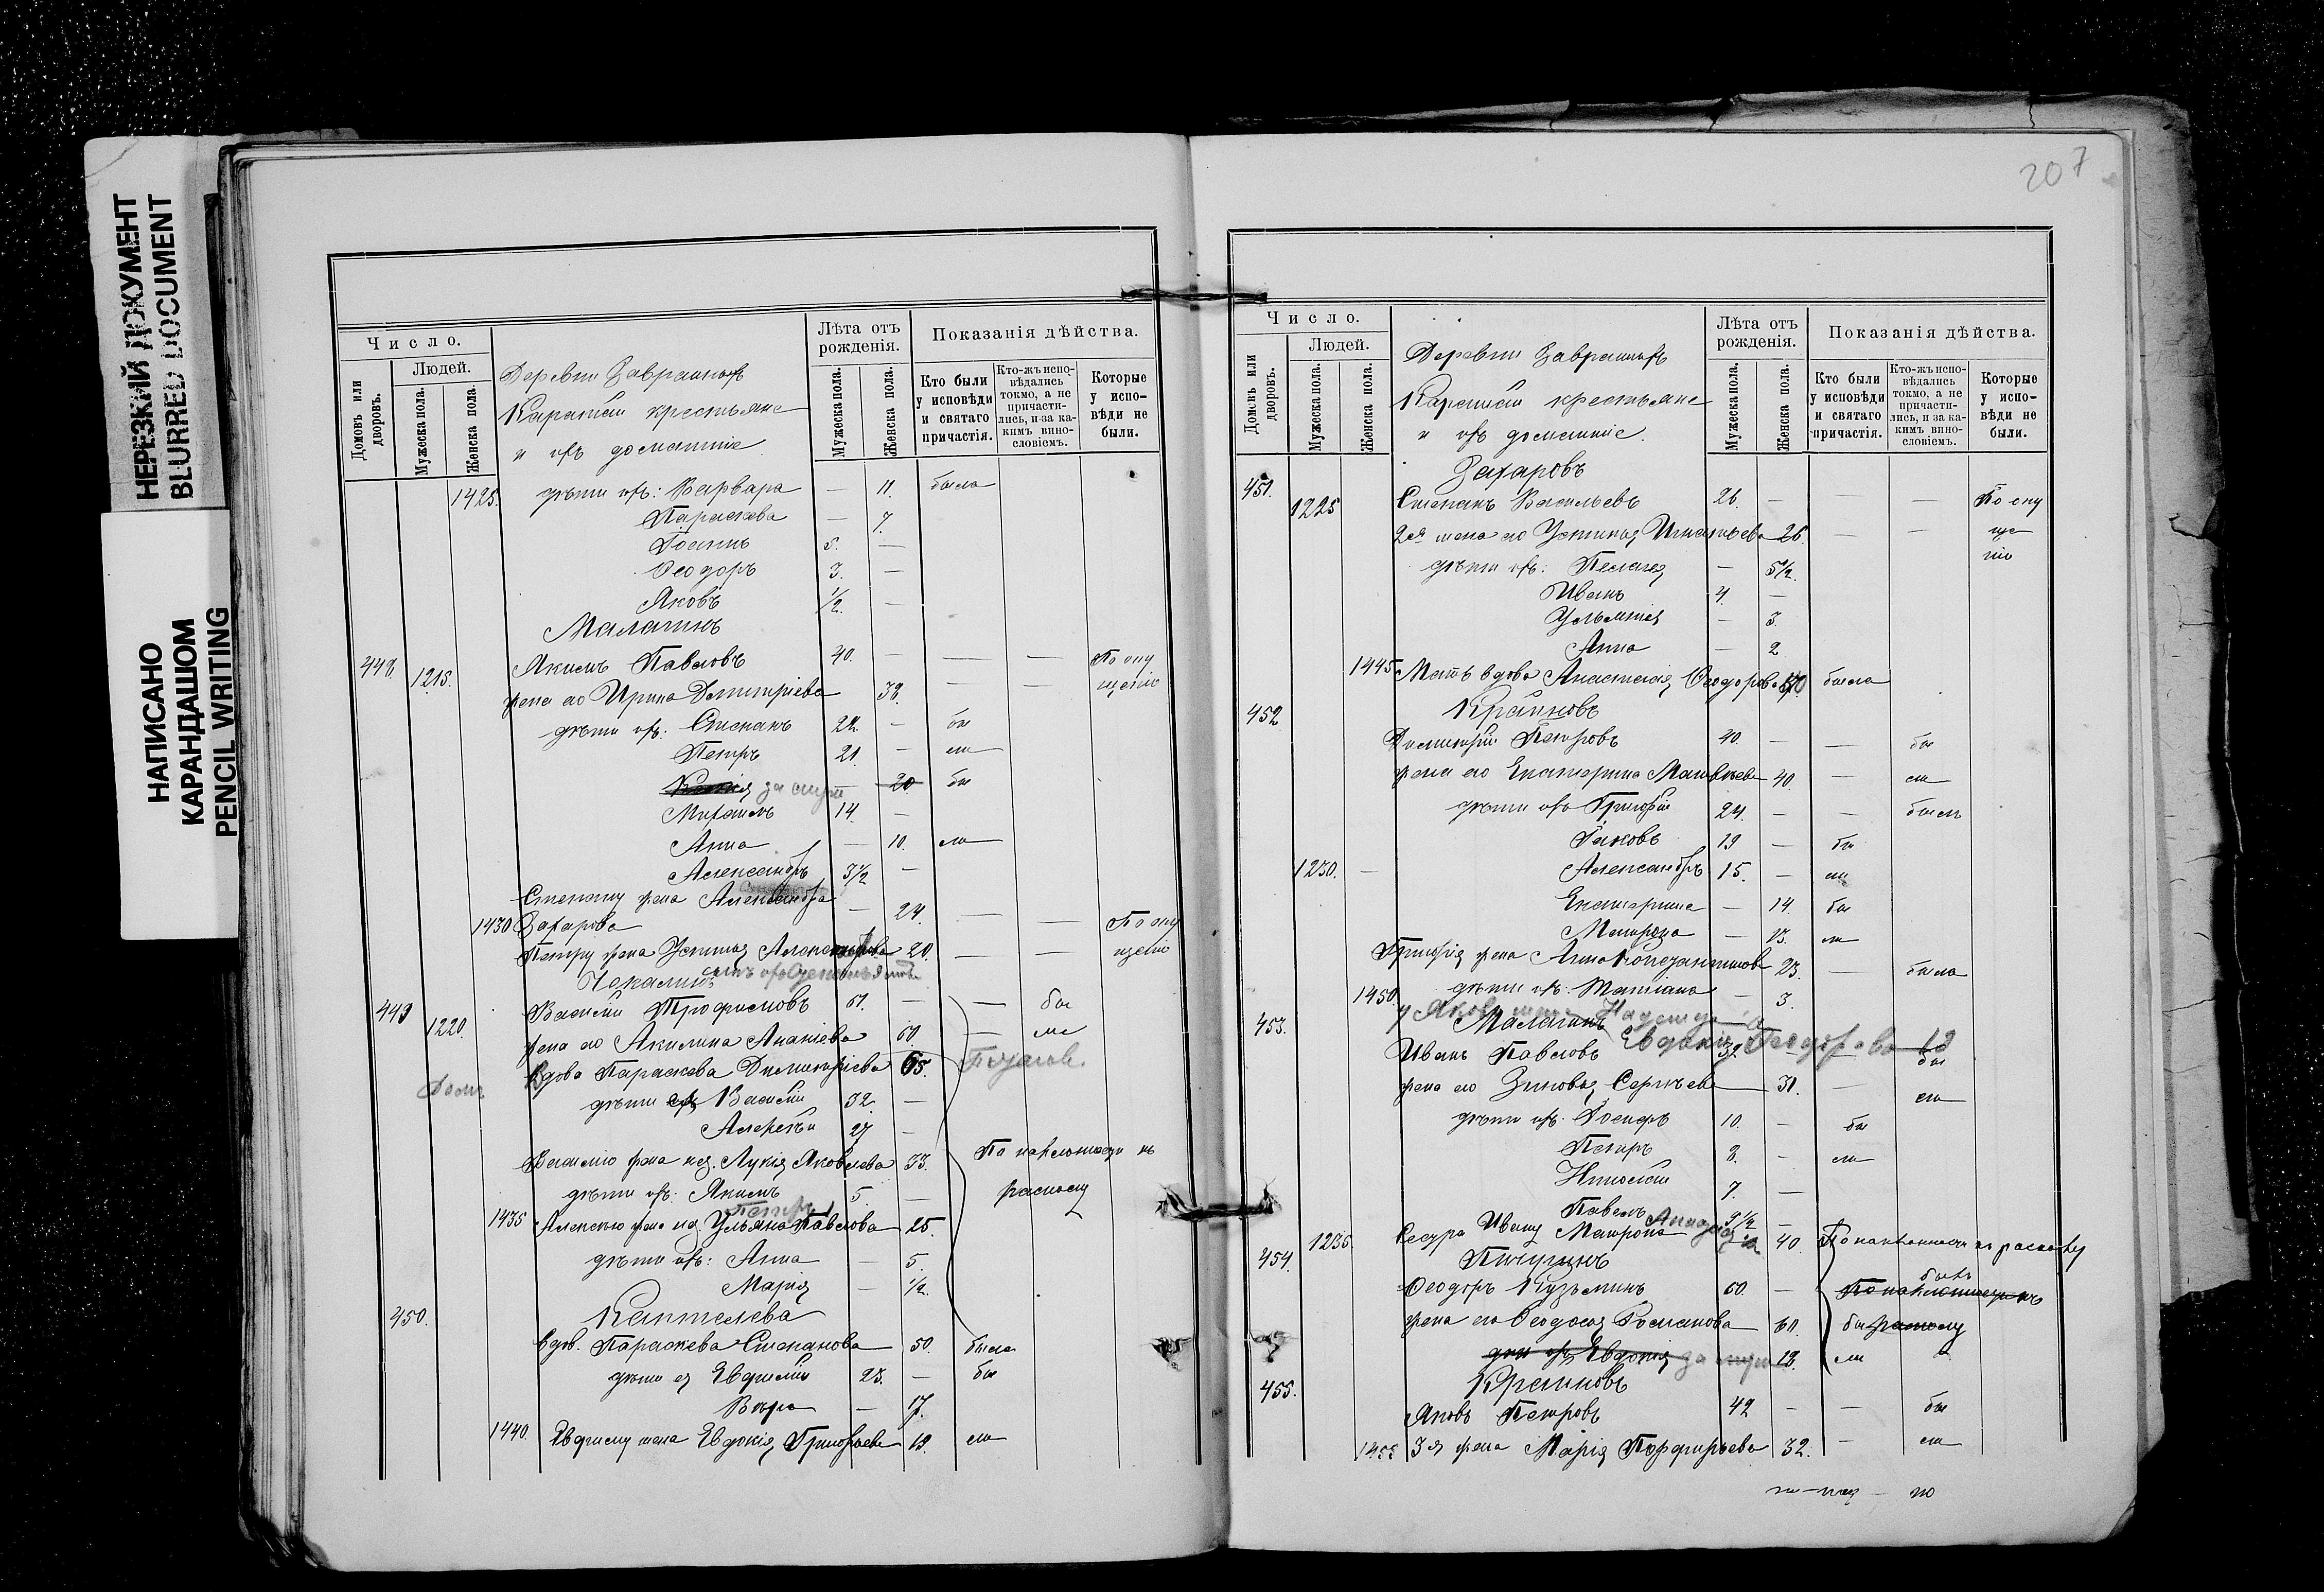 НЕРЕЗКИЙ ДОКУМЕНТ
BLURRED DOCUMENT
НАПИСАНО
КАРАНДАШОМ
PENCIL WRITING
Число.
Домовъ или дворовъ.
Людей.
Мужеска пола.
Женска пола.
Деревни
крестьяне
и ихъ домашніе.
Лѣта отъ рожденія.
Мужеска пола.
Женска пола.
Показанія дѣйства.
Кто были у исповѣди и святаго причастія.
Кто-жъ исповѣдались токмо, а не причастились, и за какимъ винословіемъ.
Которые у исповѣди не были.
1425. дѣти ихъ: Варвара — 11. была
Параскева — 7.
Іоаннъ 5. —
Ѳеодоръ 3. —
Яковъ 1/2. —
Малагинъ
448. 1215. Якимъ Павловъ 40. — — — По опу
жена его Ирина Димитріева 38. — — щенію
дѣти ихъ: Степанъ 22. — бы
Петръ 21. — ли
Ксенія за 20 бы
Михаилъ 14. —
Анна — 10. ли
Александръ 3 1/2 —
Степану жена Александра
1430 Захарова — 24. — — По опу
Петру жена Устинья 20. — — щенію
Чекалинъ
449 Василій Трофимовъ 61. — — бы
1220. жена его Акилина Ананіева 60. — ли
Вдова Параскева Димитріева 65.
дѣти Василій 32. —
Алексѣй 27 —
Василію жена нез. Лукія Яковлева 33. По наклонности къ
дѣти ихъ: Якимъ 5 — расколу
Петръ
1435 Алексѣю жена нез. Ульяна Павлова 25.
дѣти ихъ: Анна — 5.
Марія — 1/2.
450. Каптелева
вдов. Параскева Степанова 50. была
дѣти ея Евфимій 23. — бы
Вѣра — 17.
1440. Евфиму жена Евдокія Григорьева 19. ли
207
Число.
Домовъ или дворовъ.
Людей.
Мужеска пола.
Женска пола.
Деревни
крестьяне
и ихъ домашніе.
Лѣта отъ рожденія.
Мужеска пола.
Женска пола.
Показанія дѣйства.
Кто были у исповѣди и святаго причастія.
Кто-жъ исповѣдались токмо, а не причастились, и за какимъ винословіемъ.
Которые у исповѣди не были.
451. Захаровъ
1225 Степанъ Васильевъ 26. — — По опу
2ая жена его Устинья Игнатьева 26. — — ще
дѣти ихъ: Пелагея — 5 1/2. нію
Иванъ 4. —
— 3.
Анна — 2
1445 Мать вдова Анастасія Ѳеодорова 70 была
452 Крайновъ
Димитрій Петровъ 40. — — бы
жена его Екатерина Матвѣева 40. — ли
дѣти ихъ Григорій 24. — — былъ
Іаковъ 19 — бы
1230. — Александръ 15. — ли
Екатерина — 14. бы
Матрона — 13. ли
Григорія жена Анна 23. — была
1450. дѣти ихъ: Татіана — 3.
453. Малагинъ
Евдокія Ѳеодорова 19
Иванъ Павловъ бы
жена его Зиновья Сергѣева 31. — ли
дѣти ихъ: Іосифъ 10. — бы
Петръ 8. — ли
Николай 7. —
Павелъ 3 1/2 —
1235 Сестра Ивану Матрона 40. По наклонности къ расколу
454. Пичугинъ
Ѳеодоръ Кузьминъ 60. — По наклонности къ
жена его Ѳеодосья Романова 60. бы расколу
дочь ихъ Евдокія за 18. ли
455. Крайновъ
Яковъ Петровъ 42 — — бы
1455 3я жена Марія Порфирьева 32. — ли